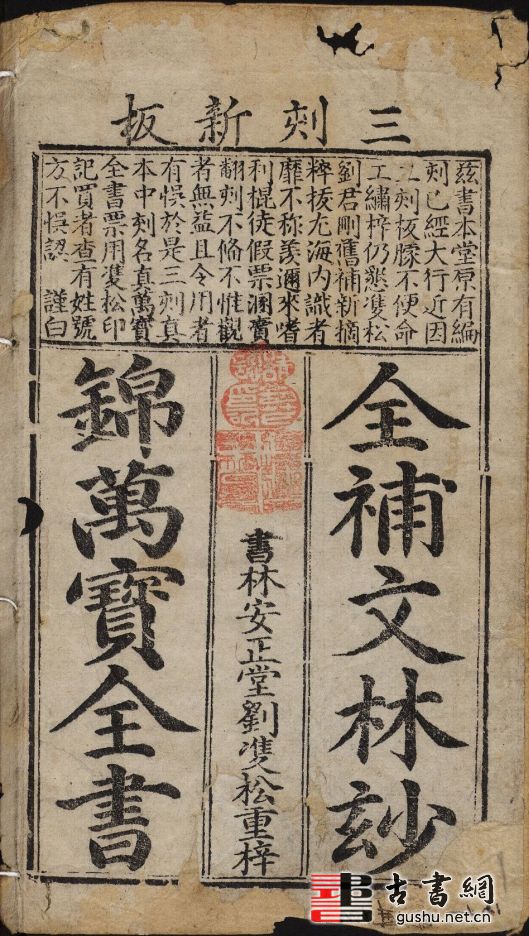 三刻新板
玆書本堂原有編
刻已經大行近因
二刻板朦不便命
工繡梓仍懇雙松
劉君剛舊補新摘
粹拔尤海内識者
靡不称羡邇來嗜
利棍徒假票溷賣
翻刻不脩不惟觀
者無益且令用者
有悞於是三刻真
本中刻名真萬寶
全書票用雙松印
記買者查有姓號
方不悞認 謹白
全補文林玅
錦萬寶全書
書林安正堂劉雙松重梓
古書網
gushu.net.cn